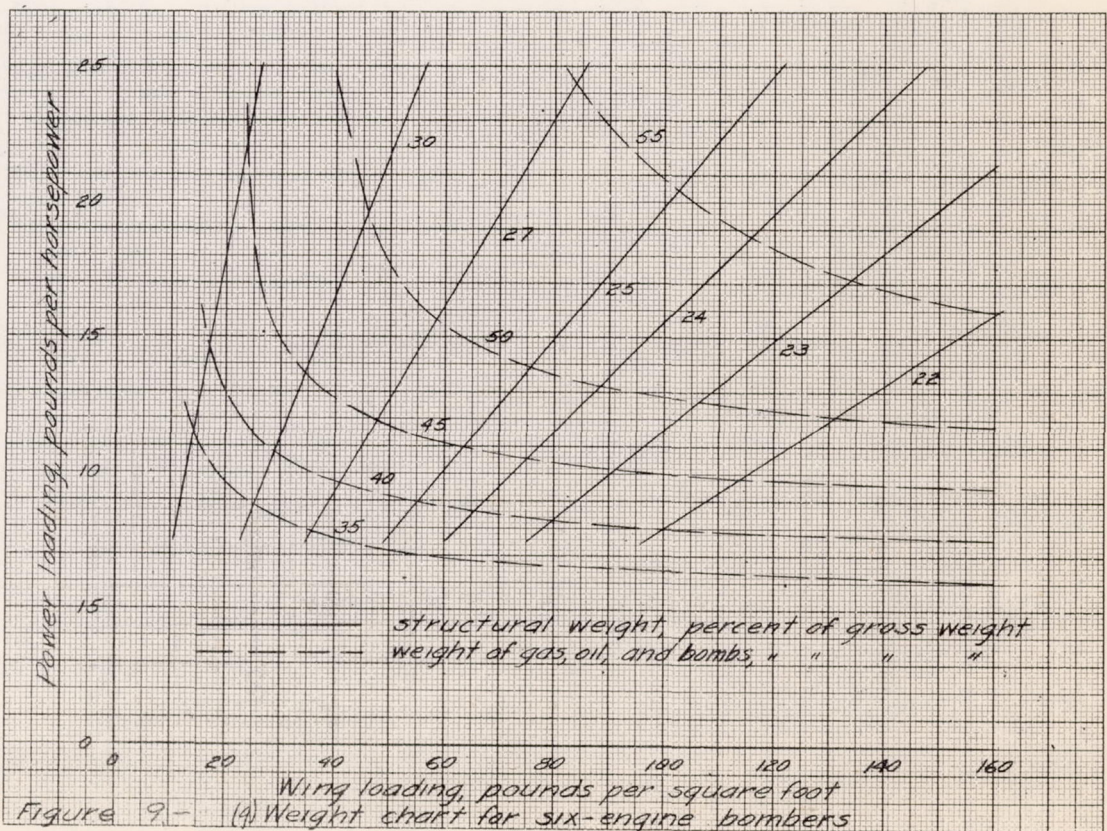 Power loading, pounds per horsepower
25
20
15
10
15
0
30
27
25
24
23
22
55
50
45
40
35
structural weight, percent of gross weight
weight of gas, oil, and bombs, " " " "
0 20 40 60 80 100 120 140 160
Wing loading, pounds per square foot
Figure 9.- (a) Weight chart for six-engine bombers